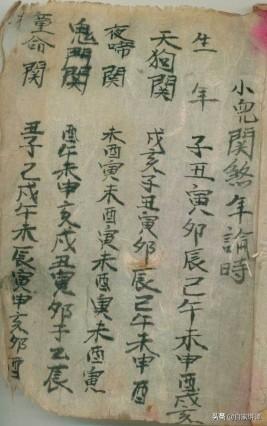 小兒関煞年論時
生年 子丑寅卯辰巳午未申酉戌亥
天狗関 戌亥子丑寅卯辰巳午未申酉
夜啼関 未酉寅未酉寅未酉寅未酉寅
鬼門関 酉午未申亥戌丑寅卯子巳辰
童命関 丑子巳戌午未辰寅申亥卯酉
头条 @